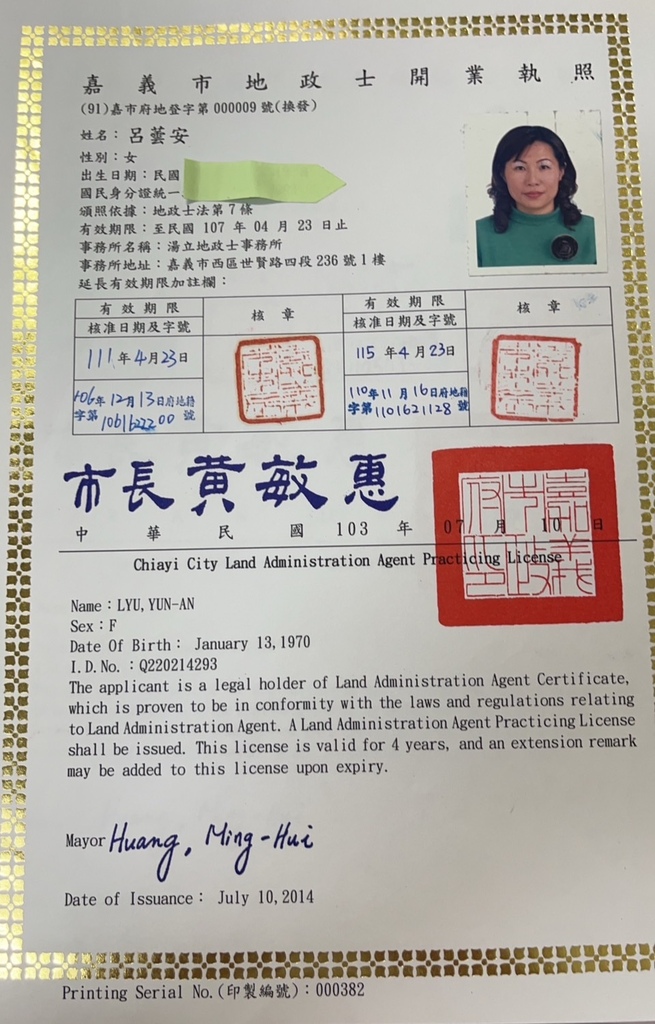 嘉義市地政士開業執照
(91)嘉市府地登字第000009號(換發)
姓名：呂蕓安
性別：女
出生日期：民國
國民身分證統一
頒照依據：地政士法第7條
有效期限：至民國 107 年 04 月 23 日止
事務所名稱：湯立地政士事務所
事務所地址：嘉義市西區世賢路四段236號1樓
延長有效期限加註欄：
有效期限 核章 有效期限 核章
核准日期及字號 核准日期及字號
111年4月23日 115年4月23日
106年12月13日府地籍字第1061622200號 110年11月16日府地籍字第1101621128號
市長黃敏惠
中華民國 103 年 07 月 10 日
嘉義市政府印
Chiayi City Land Administration Agent Practicing License
Name：LYU,YUN-AN
Sex：F
Date Of Birth： January 13,1970
I.D.No.：Q220214293
The applicant is a legal holder of Land Administration Agent Certificate,
which is proven to be in conformity with the laws and regulations relating
to Land Administration Agent. A Land Administration Agent Practicing License
shall be issued. This license is valid for 4 years, and an extension remark
may be added to this license upon expiry.
Mayor Huang, Ming-Hui
Date of Issuance： July 10,2014
Printing Serial No.(印製編號)：000382